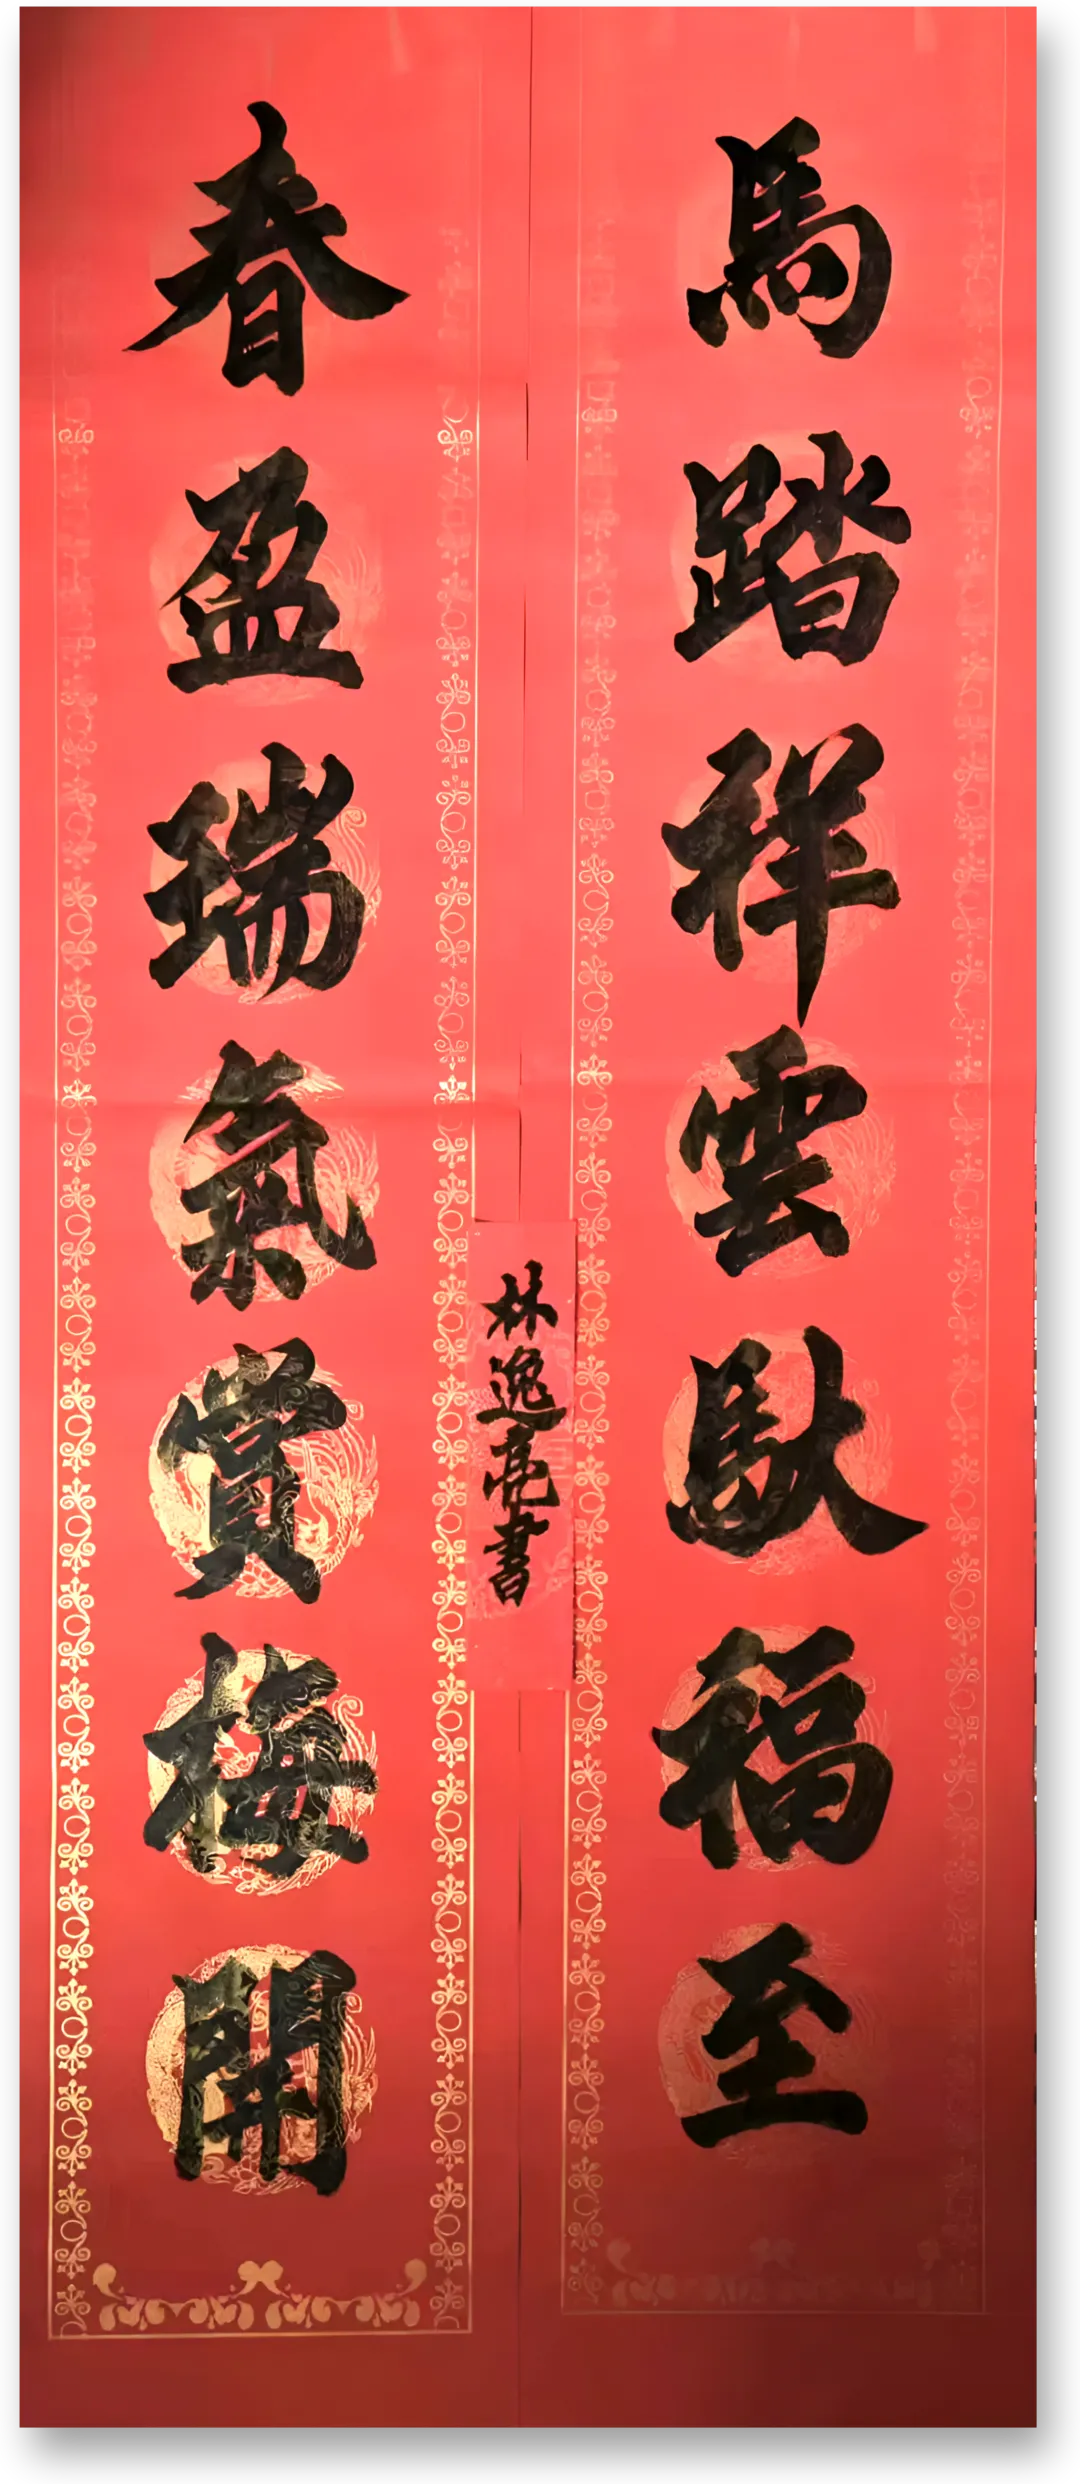 馬踏祥雲馱福至
春盈瑞氣賞梅開
林逸亮書